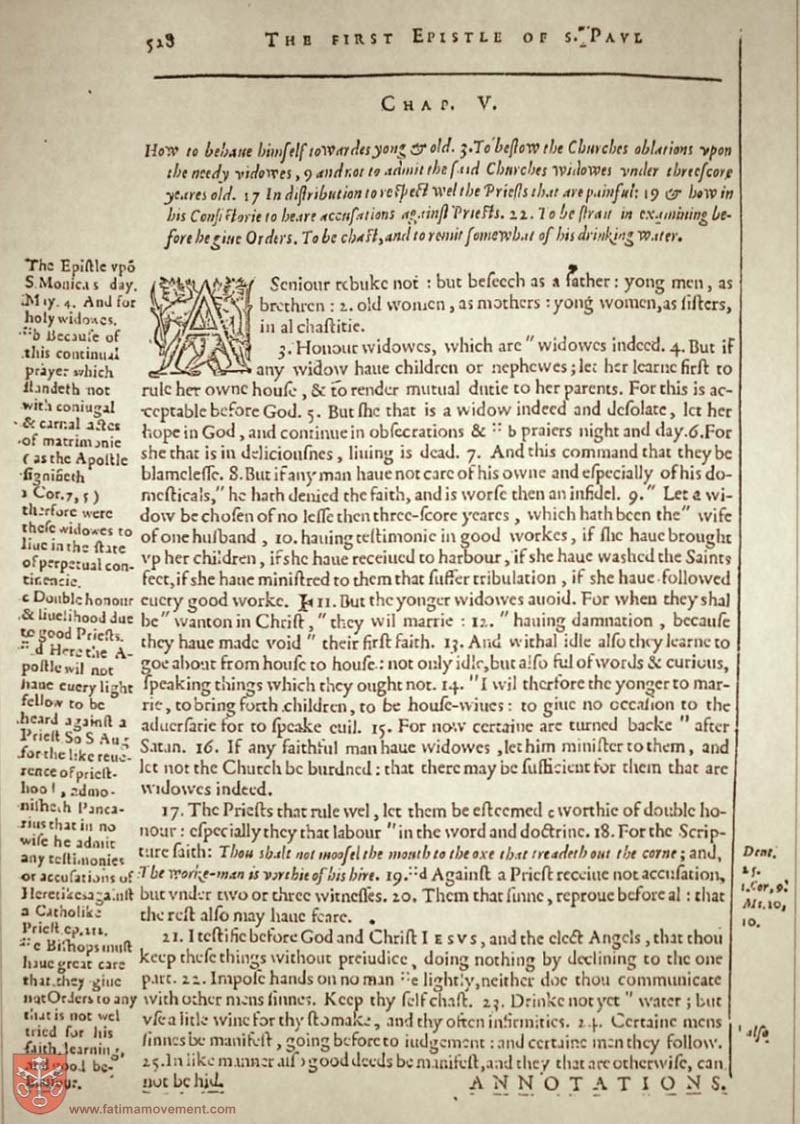 528 THE FIRST EPISTLE OF S. PAVL
CHAP. V.
How to behaue himself towardes yong & old. 3. To bestow the Churches oblations vpon
the needy vidowes, 9 and not to admit the said Churches widowes vnder threescore
yeares old. 17 In distribution to respect wel the Priests that are painful: 19 & how in
his Consistorie to heare accusations against Priests. 22. To be strait in examining be-
fore he giue Orders. To be chast, and to remit somewhat of his drinking water.
The Epistle vpō
S Monica's day.
May. 4. And for
holy widowes.
"b Because of
this continual
prayer which
standeth not
with coniugal
& carnal actes
of matrimonie
( as the Apostle
signifieth
1 Cor. 7, 5 )
therfore were
these widowes to
liue in the state
of perpetual con-
tinencie.
c Double honour
& liuelihood due
to good Priests.
"d Here the A-
postle wil not
haue euery light
fellow to be
heard against a
Priest So S Aug
for the like reue-
rence of priest-
hood, admo-
nisheth Panca-
rius that in no
wise he admit
any testimonies
or accusations of
Heretikes against
a Catholike
Priest ep. 212.
"e Bishops must
haue great care
that they giue
not Orders to any
that is not wel
tried for his
faith, learning,
and good be-
hauiour.
A Seniour rebuke not : but beseech as a father : yong men, as
brethren : 2. old women, as mothers : yong women, as sisters,
in al chastitie.
3. Honour widowes, which are " widowes indeed. 4. But if
any widow haue children or nephewes; let her learne first to
rule her owne house, & to render mutual dutie to her parents. For this is ac-
ceptable before God. 5. But she that is a widow indeed and desolate, let her
hope in God, and continue in obsecrations & " b praiers night and day. 6. For
she that is in deliciousnes, liuing is dead. 7. And this command that they be
blamelesse. 8. But if any man haue not care of his owne and especially of his do-
mesticals, " he hath denied the faith, and is worse then an infidel. 9. " Let a wi-
dow be chosen of no lesse then three-score yeares, which hath been the " wife
of one husband, 10. hauing testimonie in good workes, if she haue brought
vp her children, if she haue receiued to harbour, if she haue washed the Saints
feet, if she haue ministred to them that suffer tribulation, if she haue followed
euery good worke. 11. But the yonger widowes auoid. For when they shal
be " wanton in Christ, " they wil marrie : 12. " hauing damnation, because
they haue made void " their first faith. 13. And withal idle also they learne to
goe about from house to house : not only idle, but also ful of words & curious,
speaking things which they ought not. 14. " I wil therfore the yonger to mar-
rie, to bring forth children, to be house-wiues : to giue no occasion to the
aduersarie for to speake euil. 15. For now certaine are turned backe " after
Satan. 16. If any faithful man haue widowes, let him minister to them, and
let not the Church be burdned : that there may be sufficient for them that are
widowes indeed.
17. The Priests that rule wel, let them be esteemed c worthie of double ho-
nour : especially they that labour " in the word and doctrine. 18. For the Scrip-
ture saith: Thou shalt not moosel the mouth to the oxe that treadeth out the corne; and,
The worke-man is vorthie of his hire. 19. "d Against a Priest receiue not accusation,
but vnder two or three witnesses. 20. Them that sinne, reproue before al : that
the rest also may haue feare.
21. I testifie before God and Christ IESVS, and the elect Angels, that thou
keep these things without preiudice, doing nothing by declining to the one
part. 22. Impose hands on no man "e lightly, neither doe thou communicate
with other mens sinnes. Keep thy self chast. 23. Drinke not yet " water; but
vse a litle wine for thy stomake, and thy often infirmities. 24. Certaine mens
sinnes be manifest, going before to iudgement : and certaine men they follow.
25. In like manner also good deeds be manifest, and they that are otherwise, can
not be hid.
Deut.
25.
1. Cor, 9.
Mt. 10,
10.
' also
ANNOTATIONS.
www.fatimamovement.com